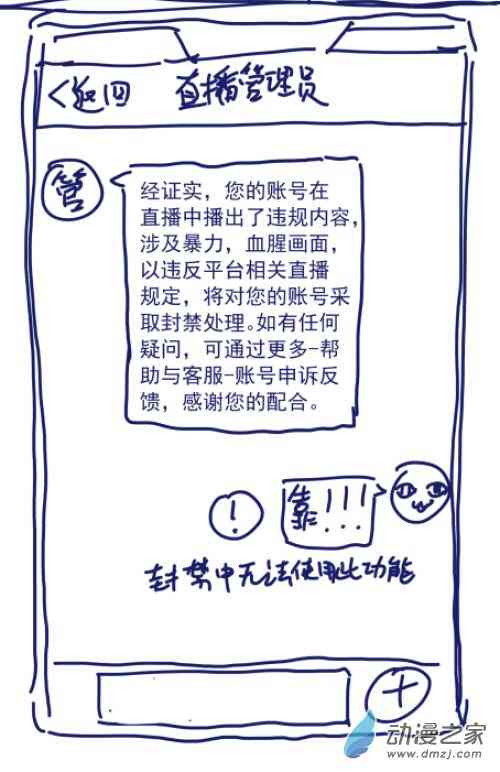 <返回 直播管理员
管
经证实，您的账号在
直播中播出了违规内容，
涉及暴力，血腥画面，
以违反平台相关直播
规定，将对您的账号采
取封禁处理。如有任何
疑问，可通过更多-帮
助与客服-账号申诉反
馈，感谢您的配合。
! 靠!!!
封禁中无法使用此功能
+
动漫之家
www.dmzj.com